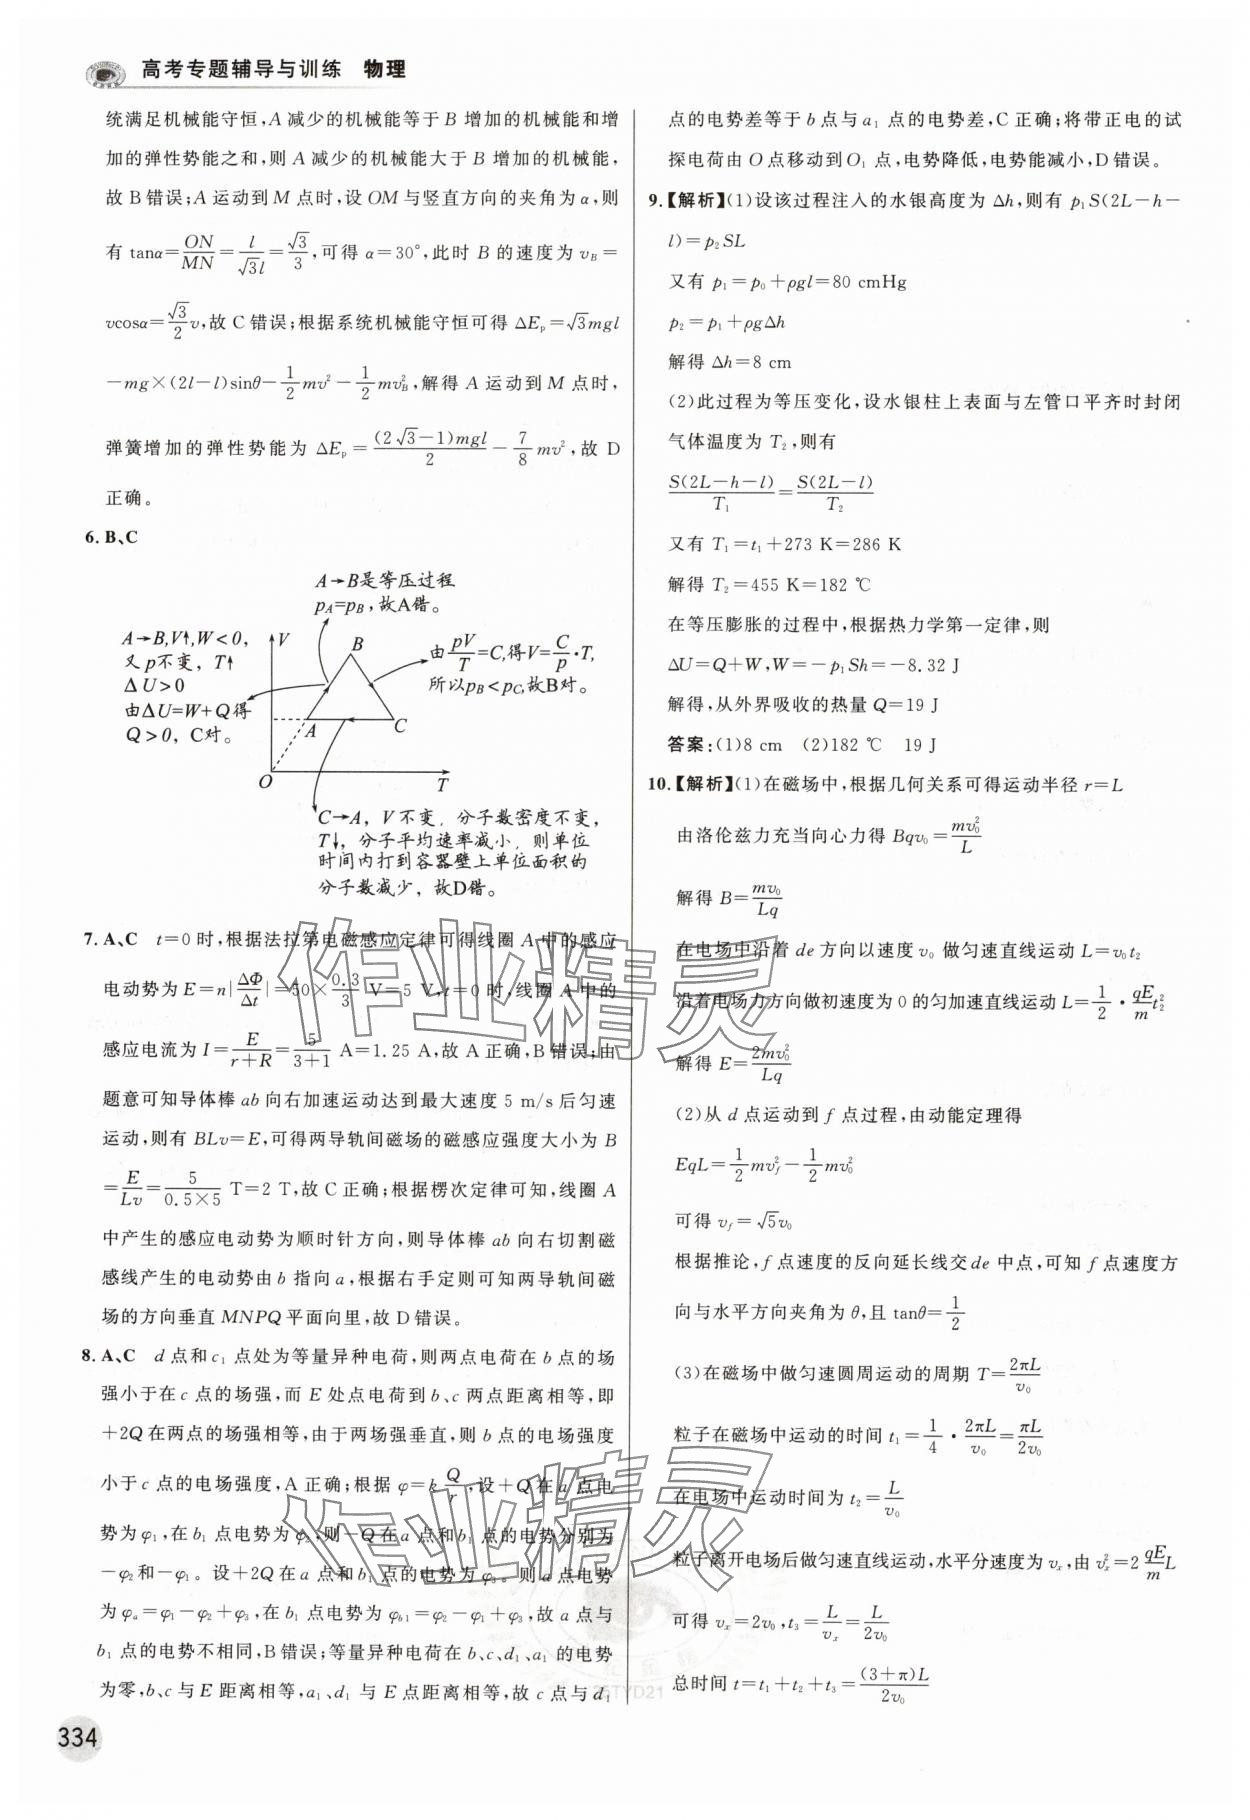 高考专题辅导与训练 物理
统满足机械能守恒,A减少的机械能等于B增加的机械能和增
加的弹性势能之和,则A减少的机械能大于B增加的机械能,
故B错误;A运动到M点时,设OM与竖直方向的夹角为α,则
有 tanα=ON/MN=l/√3l=√3/3,可得α=30°,此时B的速度为v_B=
vcosα=√3/2v,故C错误;根据系统机械能守恒可得ΔE_p=√3mgl
-mg×(2l-l)sinθ-1/2mv²-1/2mv_B²,解得A运动到M点时,
弹簧增加的弹性势能为ΔE_p=(2√3-1)mgl/2-7/8mv²,故D
正确。
6.B、C
A→B是等压过程
p_A=p_B,故A错。
A→B,V↑,W<0,
又p不变,T↑
ΔU>0
由ΔU=W+Q得
Q>0,C对。
V
B
A
C
O
T
由pV/T=C,得V=C/p·T,
所以p_B<p_C,故B对。
C→A,V不变,分子数密度不变,
T↓,分子平均速率减小,则单位
时间内打到容器壁上单位面积的
分子数减少,故D错。
7.A、C t=0时,根据法拉第电磁感应定律可得线圈A中的感应
电动势为E=n|ΔΦ/Δt|=50×0.3/3 V=5 V,t=0时,线圈A中的
感应电流为I=E/(r+R)=5/(3+1) A=1.25 A,故A正确,B错误;由
题意可知导体棒ab向右加速运动达到最大速度5 m/s后匀速
运动,则有BLv=E,可得两导轨间磁场的磁感应强度大小为B
=E/Lv=5/(0.5×5) T=2 T,故C正确;根据楞次定律可知,线圈A
中产生的感应电动势为顺时针方向,则导体棒ab向右切割磁
感线产生的电动势由b指向a,根据右手定则可知两导轨间磁
场的方向垂直MNPQ平面向里,故D错误。
8.A、C d点和c₁点处为等量异种电荷,则两点电荷在b点的场
强小于在c点的场强,而E处点电荷到b、c两点距离相等,即
+2Q在两点的场强相等,由于两场强垂直,则b点的电场强度
小于c点的电场强度,A正确;根据φ=kQ/r,设+Q在a点电
势为φ₁,在b₁点电势为φ₂,则-Q在a点和b₁点的电势分别为
-φ₂和-φ₁。设+2Q在a和b₁点的电势为φ₃。则a点电势
为φ_a=φ₁-φ₂+φ₃,在b₁点电势为φ_b1=φ₂-φ₁+φ₃,故a点与
b₁点的电势不相同,B错误;等量异种电荷在b、c、d₁、a₁的电势
为零,b、c与E距离相等,a₁、d₁与E点距离相等,故c点与d₁
点的电势差等于b点与a₁点的电势差,C正确;将带正电的试
探电荷由O点移动到O₁点,电势降低,电势能减小,D错误。
9.【解析】(1)设该过程注入的水银高度为Δh,则有p₁S(2L-h-
l)=p₂SL
又有p₁=p₀+ρgl=80 cmHg
p₂=p₁+ρgΔh
解得Δh=8 cm
(2)此过程为等压变化,设水银柱上表面与左管口平齐时封闭
气体温度为T₂,则有
S(2L-h-l)/T₁=S(2L-l)/T₂
又有T₁=t₁+273 K=286 K
解得T₂=455 K=182 ℃
在等压膨胀的过程中,根据热力学第一定律,则
ΔU=Q+W,W=-p₁Sh=-8.32 J
解得,从外界吸收的热量Q=19 J
答案:(1)8 cm (2)182 ℃ 19 J
10.【解析】(1)在磁场中,根据几何关系可得运动半径r=L
由洛伦兹力充当向心力得Bqv₀=mv₀²/L
解得B=mv₀/Lq
在电场中沿着de方向以速度v₀做匀速直线运动L=v₀t₂
沿着电场力方向做初速度为0的匀加速直线运动L=1/2·qE/m t₂²
解得E=2mv₀²/Lq
(2)从d点运动到f点过程,由动能定理得
EqL=1/2mv_f²-1/2mv₀²
可得v_f=√5v₀
根据推论,f点速度的反向延长线交de中点,可知f点速度方
向与水平方向夹角为θ,且tanθ=1/2
(3)在磁场中做匀速圆周运动的周期T=2πL/v₀
粒子在磁场中运动的时间t₁=1/4·2πL/v₀=πL/2v₀
在电场中运动时间为t₂=L/v₀
粒子离开电场后做匀速直线运动,水平分速度为v_x,由v_x²=2 qE/m L
可得v_x=2v₀,t₃=L/v_x=L/2v₀
总时间t=t₁+t₂+t₃=(3+π)L/2v₀
334
作业精灵
作业精灵
25TYD21